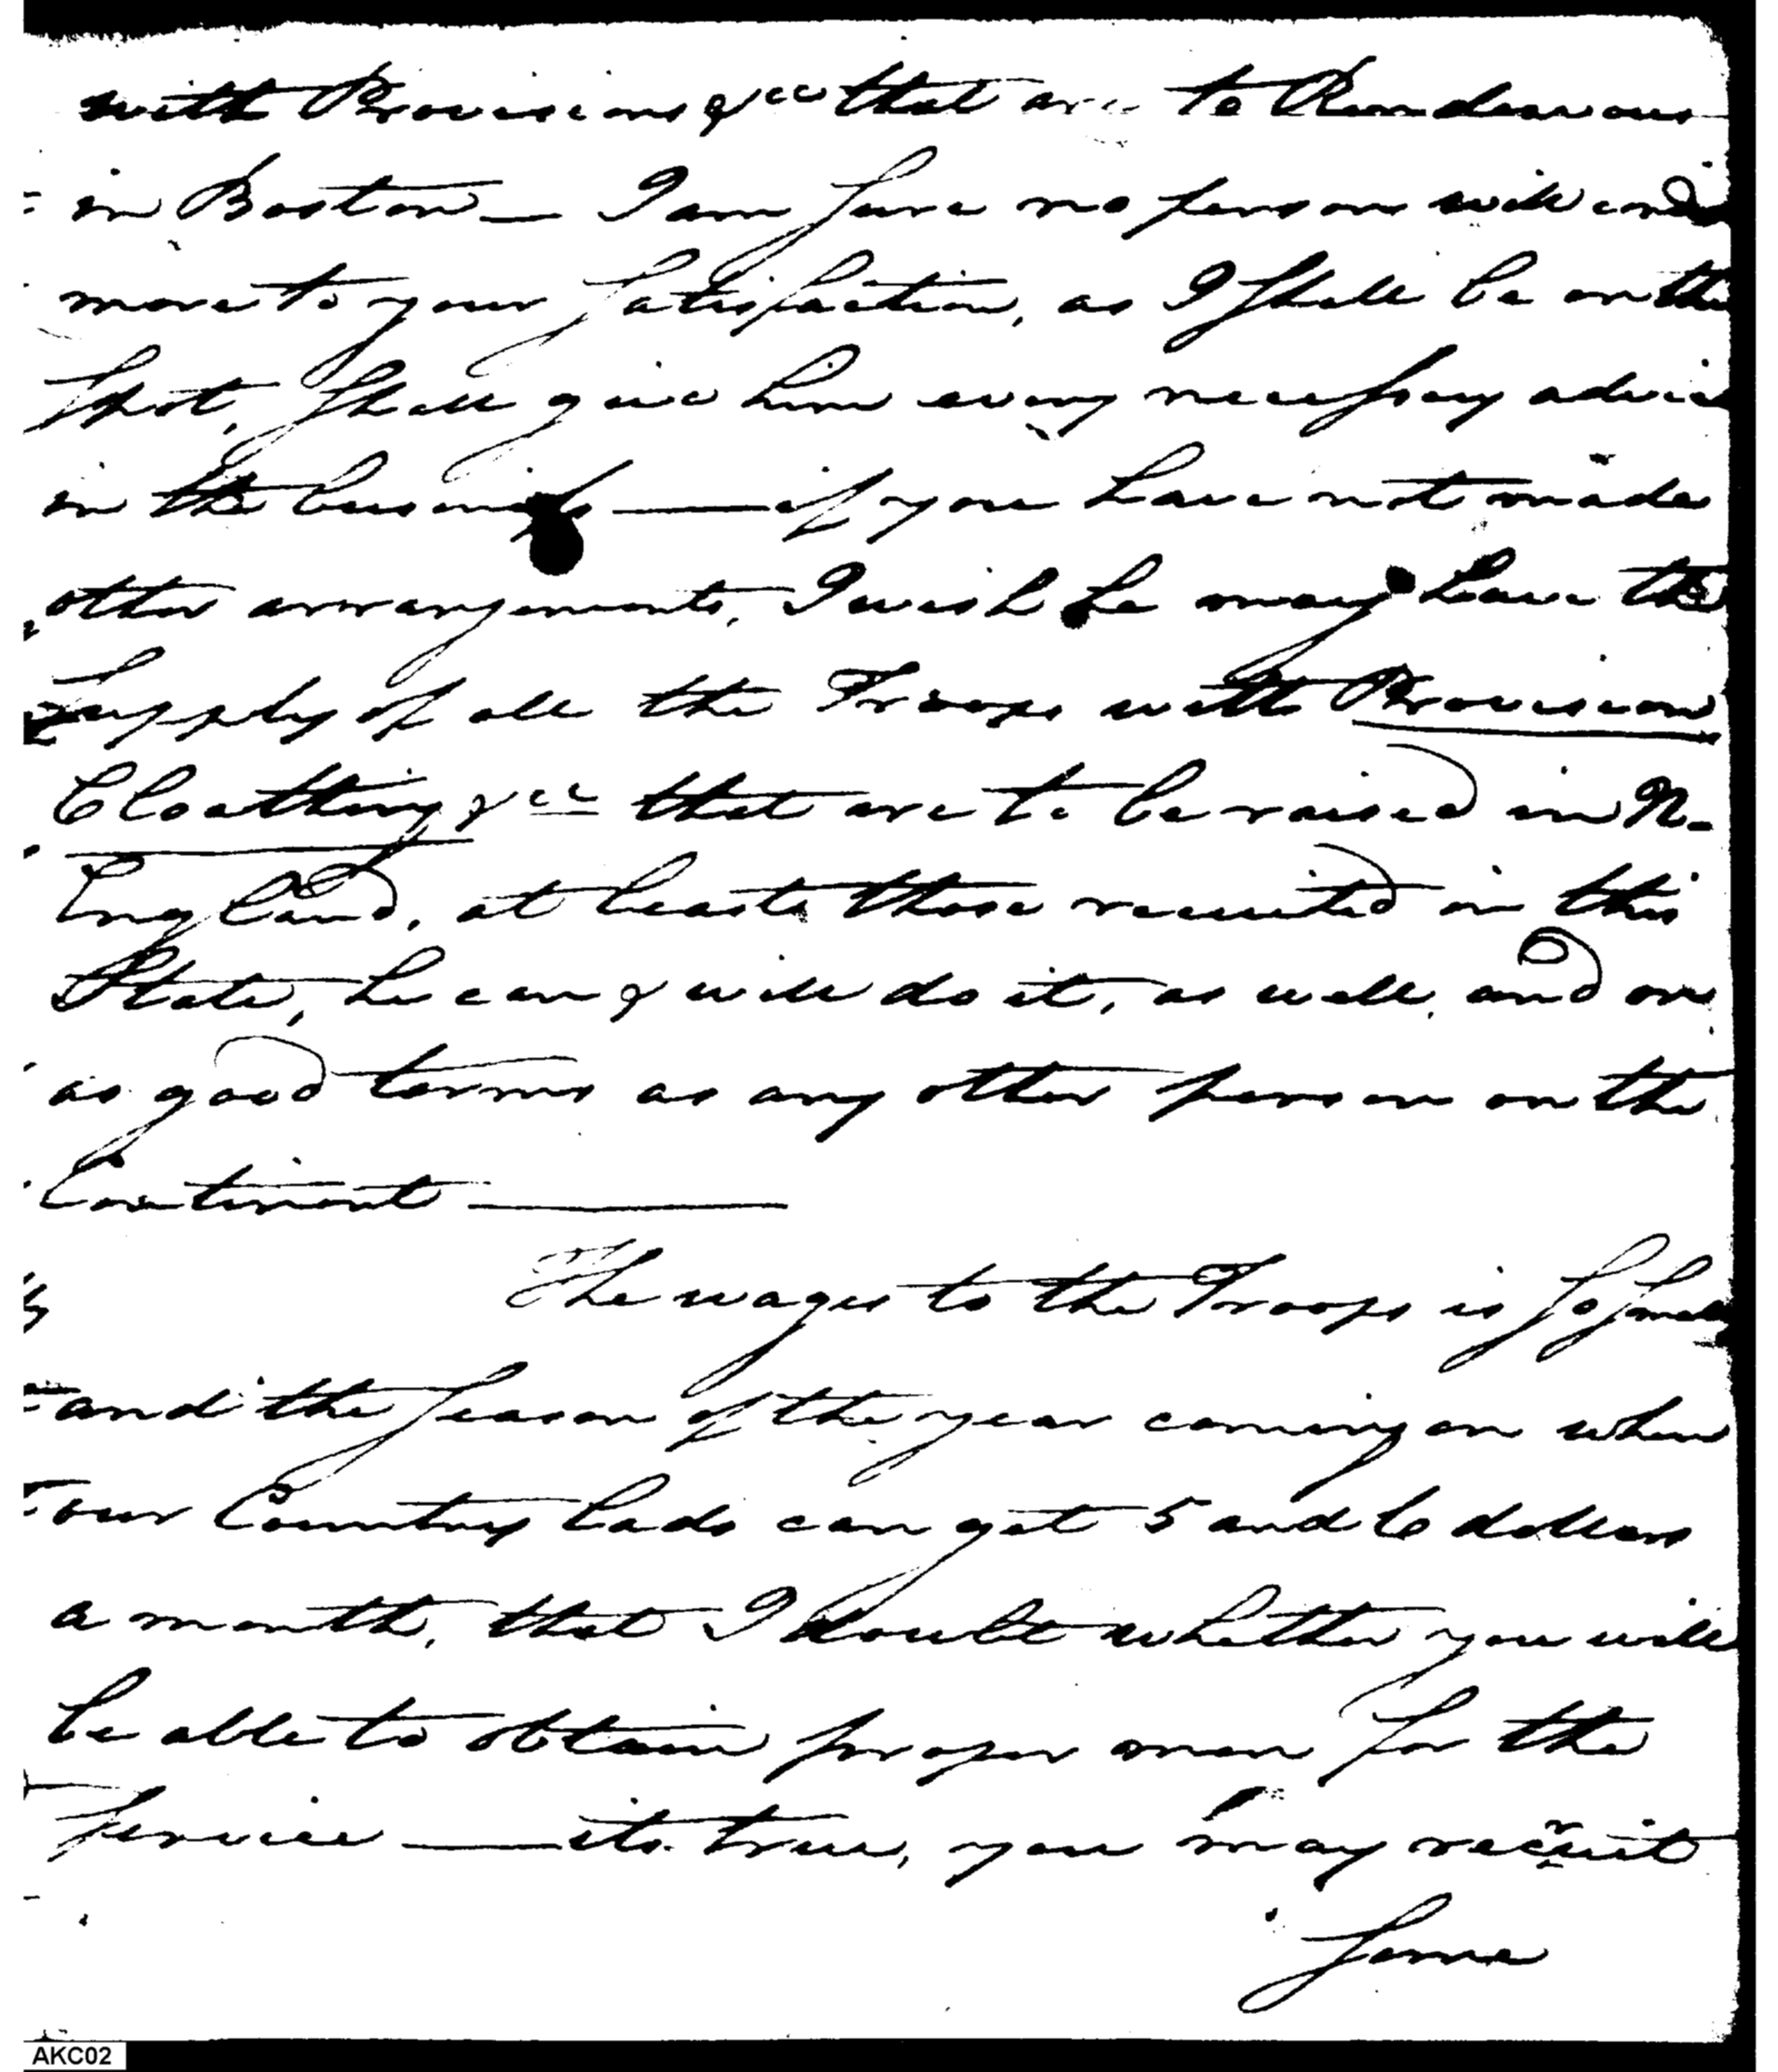 with Provisions &cc that are to Rendevous
in Boston — I am sure no person will conduct
more to your Satisfaction, as I shall be on the
spot, shall give him every necessary advice
in the business — if you have not made
other arrangements, I wish he may have the
supply of all the Troops with Provision
Cloathing &cc that are to be raised in N.
England, at leaste those recruited in this
State, he can & will do it, as well, and on
as good terms as any other person on the
Continent —
The wages to the Troops is so small
and the season of the year coming on when
our Country lads can get 5 and 6 dollars
a month, that I doubt whether you will
be able to obtain proper men for the
service — its true, you may recruit
some
AKC02